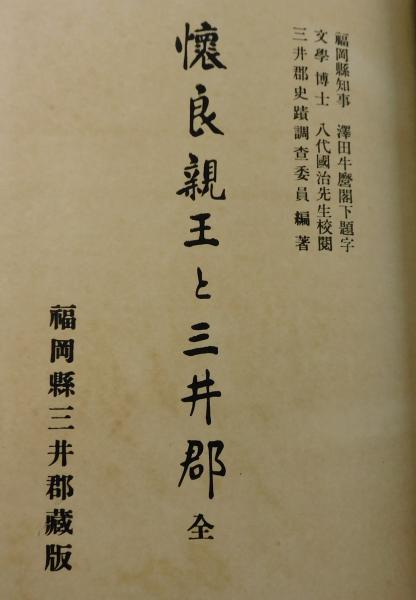 福岡縣知事 澤田牛麿閣下題字
文學博士 八代國治先生校閱
三井郡史蹟調査委員編著
懷良親王と三井郡 全
福岡縣三井郡藏版